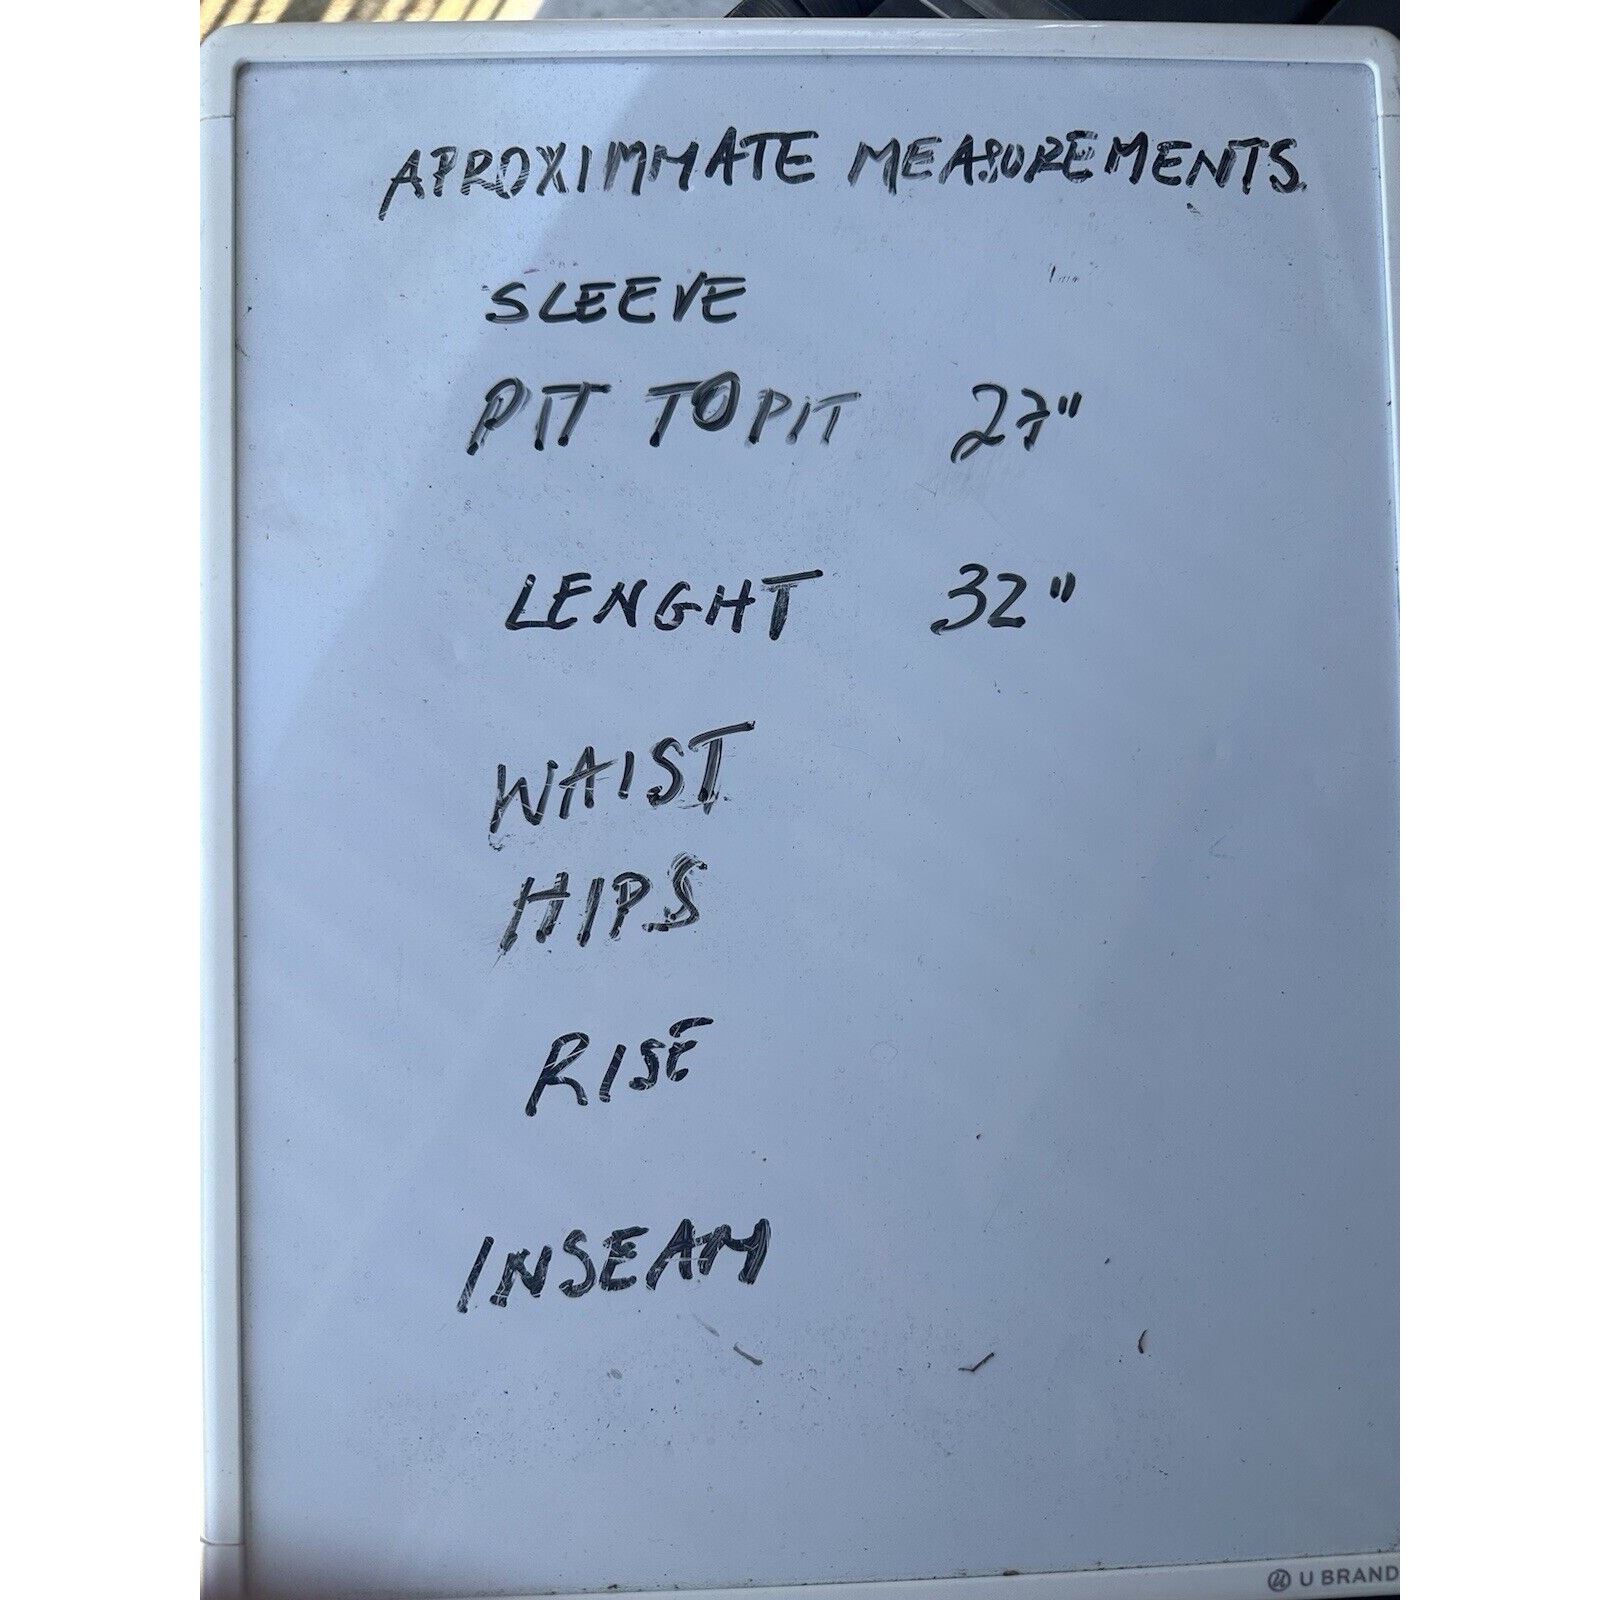 APROXIMMATE MEASUREMENTS
SLEEVE
PIT TO PIT 27"
LENGHT 32"
WAIST
HIPS
RISE
INSEAM
U BRAND